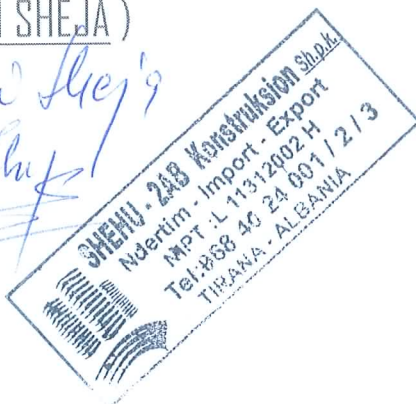 SHEJA )
Sheja
SHEHU - 2AB Konstruksion Sh.p.k.
Ndertim - Import - Export
MPT : L 11312002 H
Tel: 068 40 24 001 / 2 / 3
TIRANA - ALBANIA